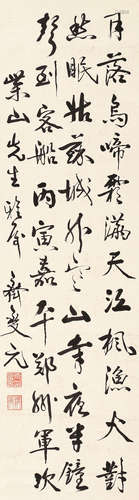 月落烏啼霜滿天江楓漁火對
愁眠姑蘇城外寒山寺夜半鐘
聲到客船丙寅嘉平鄭州軍次
業山先生雅屬
齊燮元